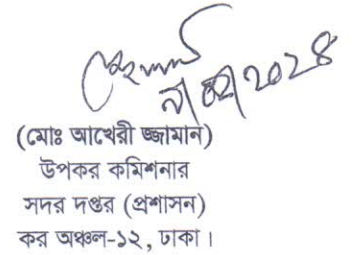 (মোঃ আখেরী জ্জামান)
উপকর কমিশনার
সদর দপ্তর (প্রশাসন)
কর অঞ্চল-১২, ঢাকা।